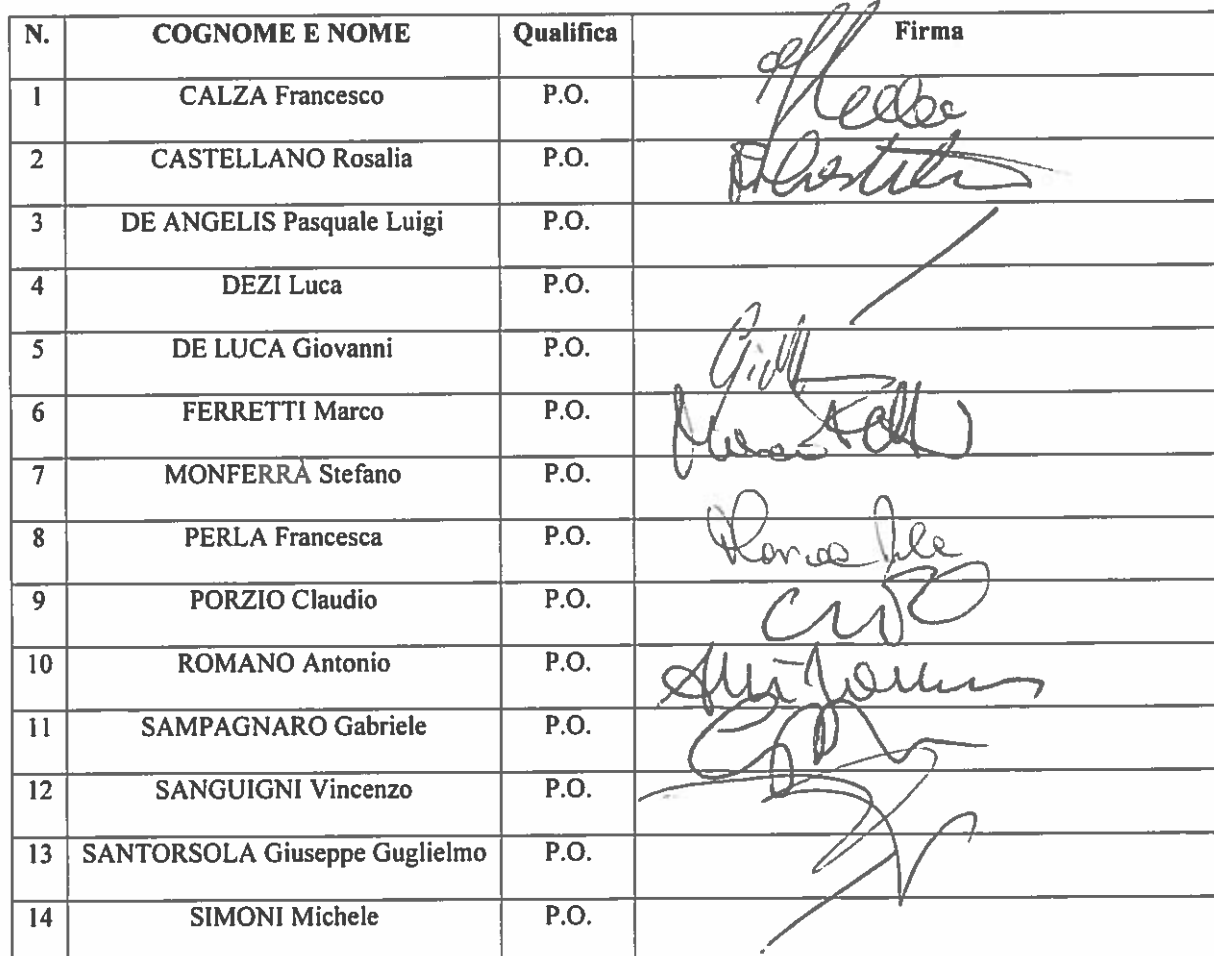 N. COGNOME E NOME Qualifica Firma
1 CALZA Francesco P.O.
2 CASTELLANO Rosalia P.O.
3 DE ANGELIS Pasquale Luigi P.O.
4 DEZI Luca P.O.
5 DE LUCA Giovanni P.O.
6 FERRETTI Marco P.O. Marco
7 MONFERRÀ Stefano P.O.
8 PERLA Francesca P.O.
9 PORZIO Claudio P.O.
10 ROMANO Antonio P.O.
11 SAMPAGNARO Gabriele P.O.
12 SANGUIGNI Vincenzo P.O.
13 SANTORSOLA Giuseppe Guglielmo P.O.
14 SIMONI Michele P.O.